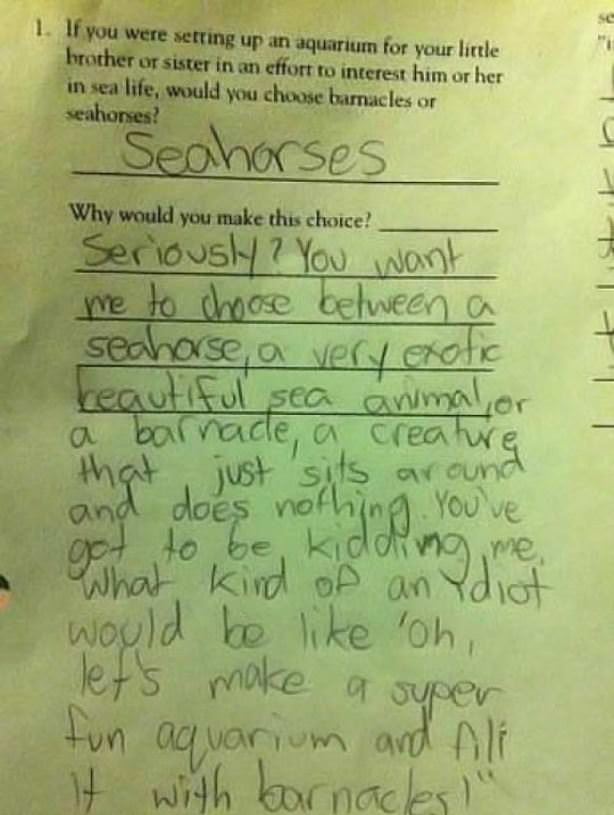 1. If you were setting up an aquarium for your little
brother or sister in an effort to interest him or her
in sea life, would you choose barnacles or
seahorses?
Seahorses
Why would you make this choice?
Seriously? You want
me to choose between a
seahorse, a very exotic
beautiful sea animal, or
a barnacle, a creature
that just sits around
and does nothing. You've
got to be kidding me.
What kind of an idiot
would be like 'oh,
let's make a super
fun aquarium and fill
it with barnacles!"